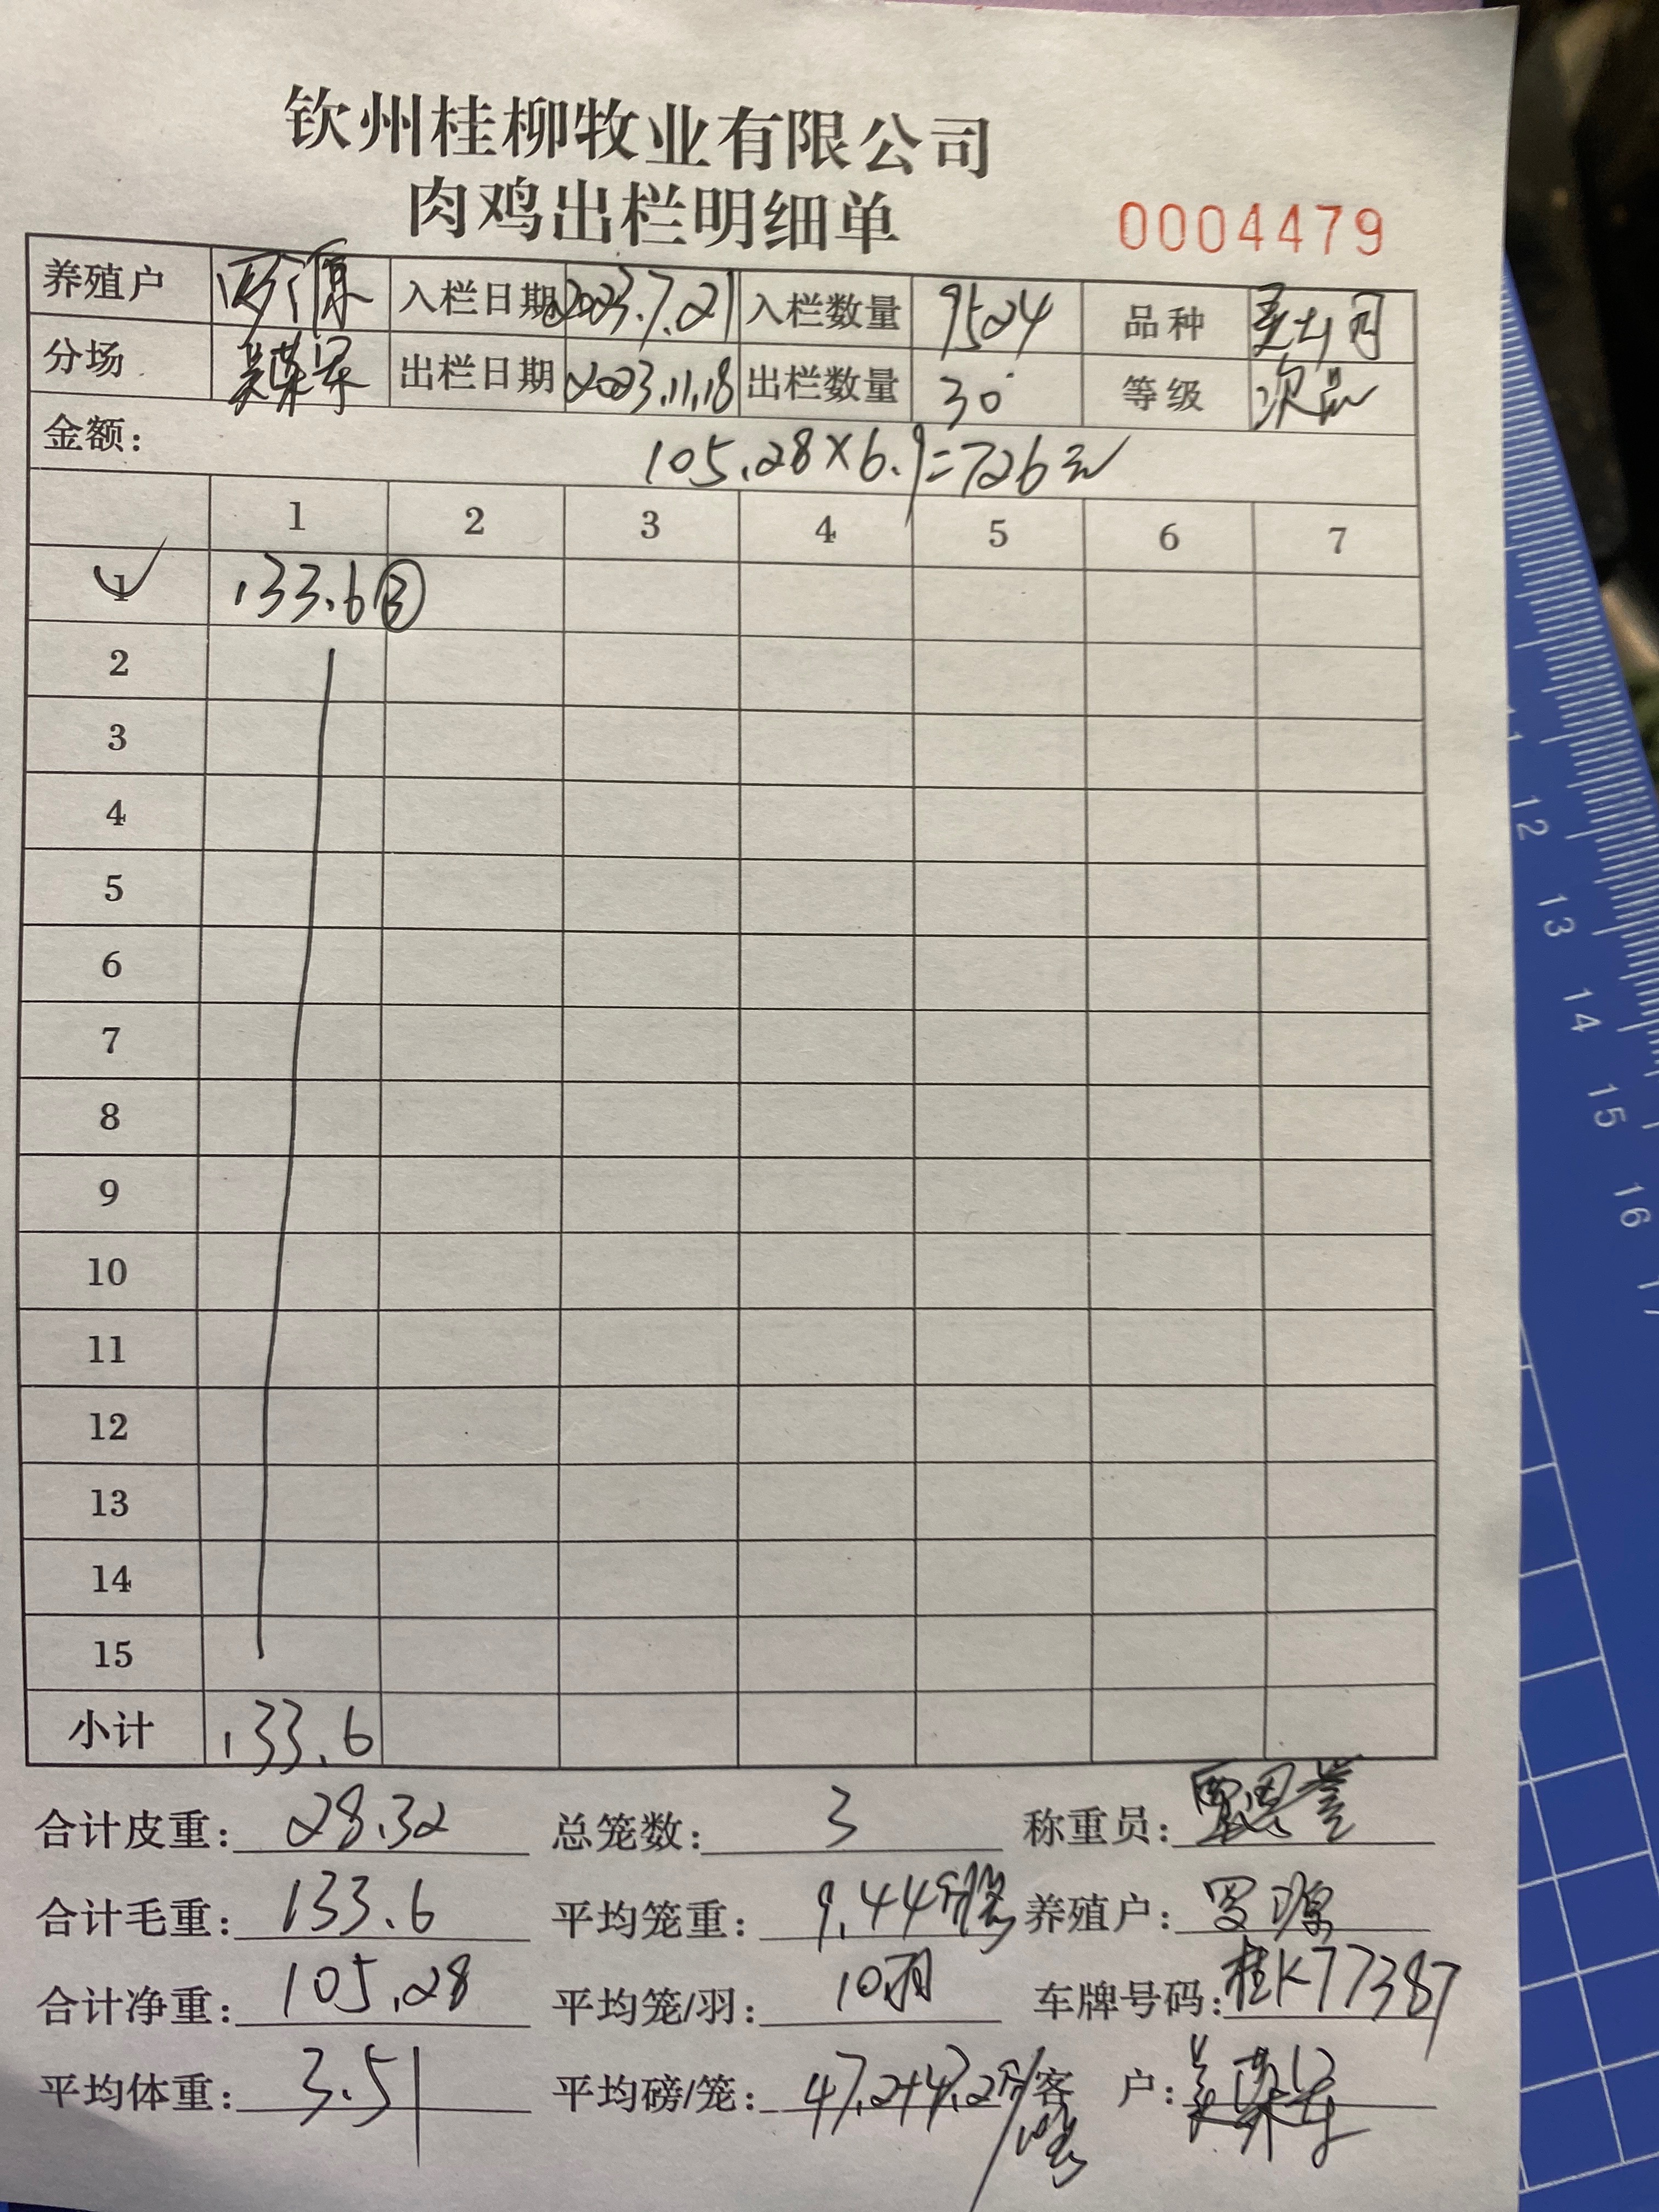 钦州桂柳牧业有限公司
肉鸡出栏明细单
0004479
养殖户 入栏日期 2023.7.21 入栏数量 9524 品种
分场 出栏日期 2023.11.18 出栏数量 30 等级 次品
金额: 105.28×6.9=726元
1 2 3 4 5 6 7
1 133.6 ③
2
3
4
5
6
7
8
9
10
11
12
13
14
15
小计 133.6
合计皮重: 28.32 总笼数: 3 称重员:
合计毛重: 133.6 平均笼重: 9.44 养殖户: 罗源
合计净重: 105.28 平均笼/羽: 10羽 车牌号码: 桂K77387
平均体重: 3.51 平均磅/笼: 47.2+47.2 客户:
12
13
14
15
16